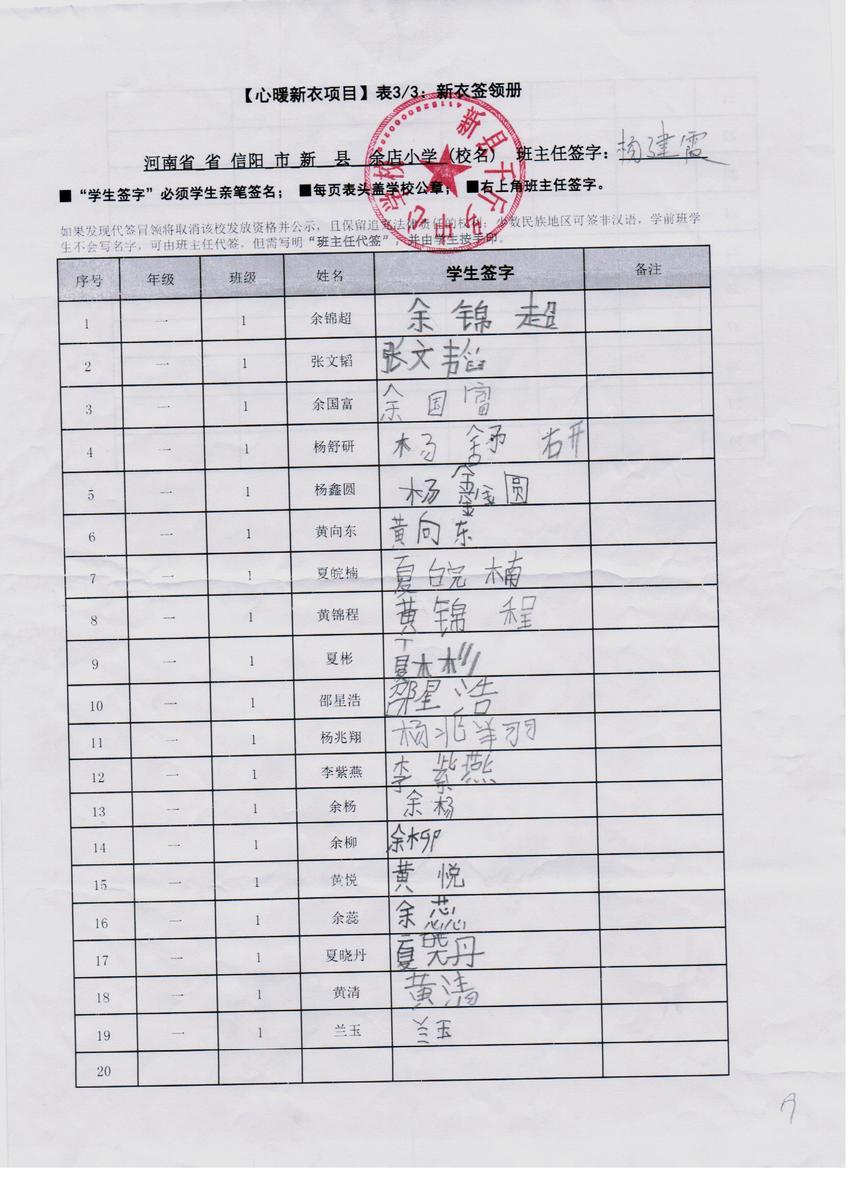 【心暖新衣项目】表3/3：新衣签领册
河南省 省 信阳 市 新 县 余店小学（校名） 班主任签字：杨建霞
■“学生签字”必须学生亲笔签名； ■每页表头盖学校公章； ■右上角班主任签字。
如果发现代签冒领将取消该校发放资格并公示，且保留追究法律责任的权利；少数民族地区可签非汉语，学前班学
生不会写名字，可由班主任代签，但需写明“班主任代签”，并由学生按手印。
序号 年级 班级 姓名 学生签字 备注
1 一 1 余锦超 余锦超
2 一 1 张文韬 张文韬
3 一 1 余国富 余国富
4 一 1 杨舒研 杨舒研
5 一 1 杨鑫圆 杨鑫圆
6 一 1 黄向东 黄向东
7 一 1 夏皖楠 夏皖楠
8 一 1 黄锦程 黄锦程
9 一 1 夏彬 夏彬
10 一 1 邵星浩 邵星浩
11 一 1 杨兆翔 杨兆翔
12 一 1 李紫燕 李紫燕
13 一 1 余杨 余杨
14 一 1 余柳 余柳
15 一 1 黄悦 黄悦
16 一 1 余蕊 余蕊
17 一 1 夏晓丹 夏晓丹
18 一 1 黄清 黄清
19 一 1 兰玉 兰玉
20